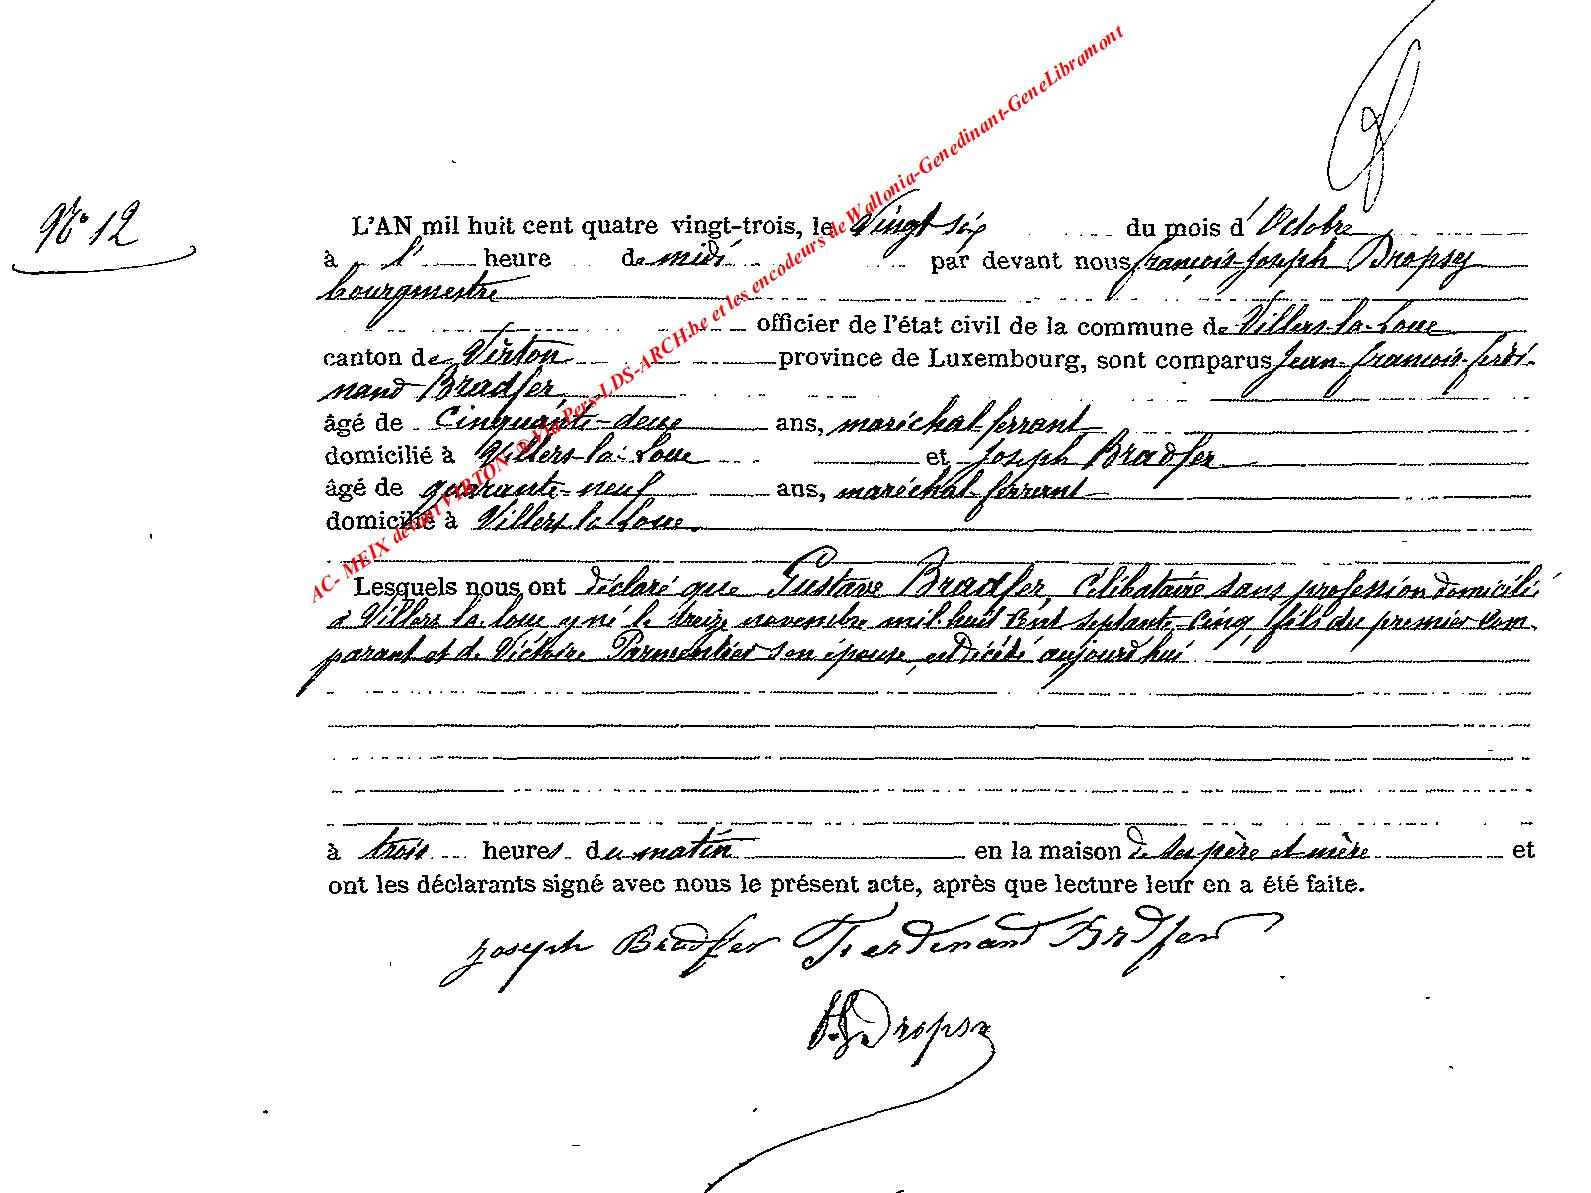 N° 12
L'AN mil huit cent quatre vingt-trois, le Vingt six du mois d'Octobre
à l' heure de midi par devant nous françois-Joseph Dropsy
bourgmestre
officier de l'état civil de la commune de Villers-la-Loue
canton de Virton province de Luxembourg, sont comparus Jean-françois-ferdi-
nand Bradfer
âgé de Cinquante-deux ans, maréchal-ferrant
domicilié à Villers-la-Loue et Joseph Bradfer
âgé de quarante-neuf ans, maréchal-ferrant
domicilié à Villers la Loue.
Lesquels nous ont déclaré que Gustave Bradfer, Célibataire sans profession domicilié
à Villers la-loue y né le treize novembre mil-huit Cent septante-cinq, fils du premier com-
parant et de Victoire Parmentier son épouse, est décédé aujourd'hui
à trois heures du matin en la maison de ses père et mère et
ont les déclarants signé avec nous le présent acte, après que lecture leur en a été faite.
Joseph Bradfer Ferdinand Bradfer
Dropsy
AC- MEIX devant VIRTON ® Via Pers-LDS-ARCH.be et les encodeurs de Wallonia-Genedinant-GeneLibramont